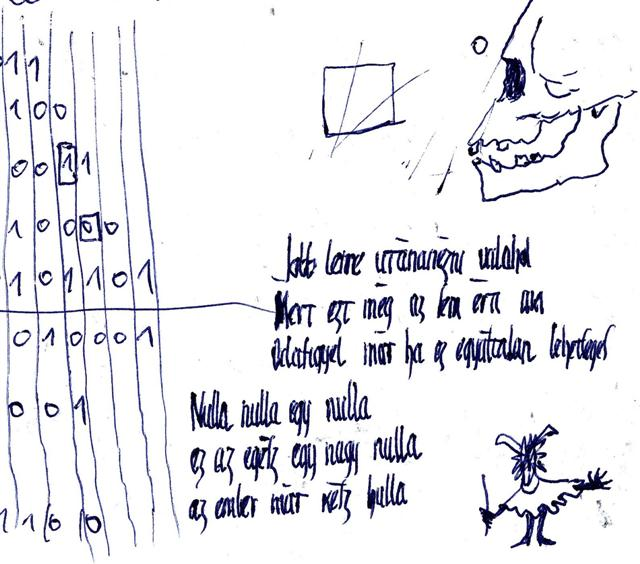 1 1
1 0 0
0 0 1 1
1 0 0 0 0
1 0 1 1 0 1
0 1 0 0 0 1
0 0 1
1 1 0 0
Jobb lenne utánanézni valahol
Mert ezt még az sem érti aki
Odafigyel már ha ez egyáltalán lehetséges
Nulla nulla egy nulla
ez az egész egy nagy nulla
az ember már kész hulla